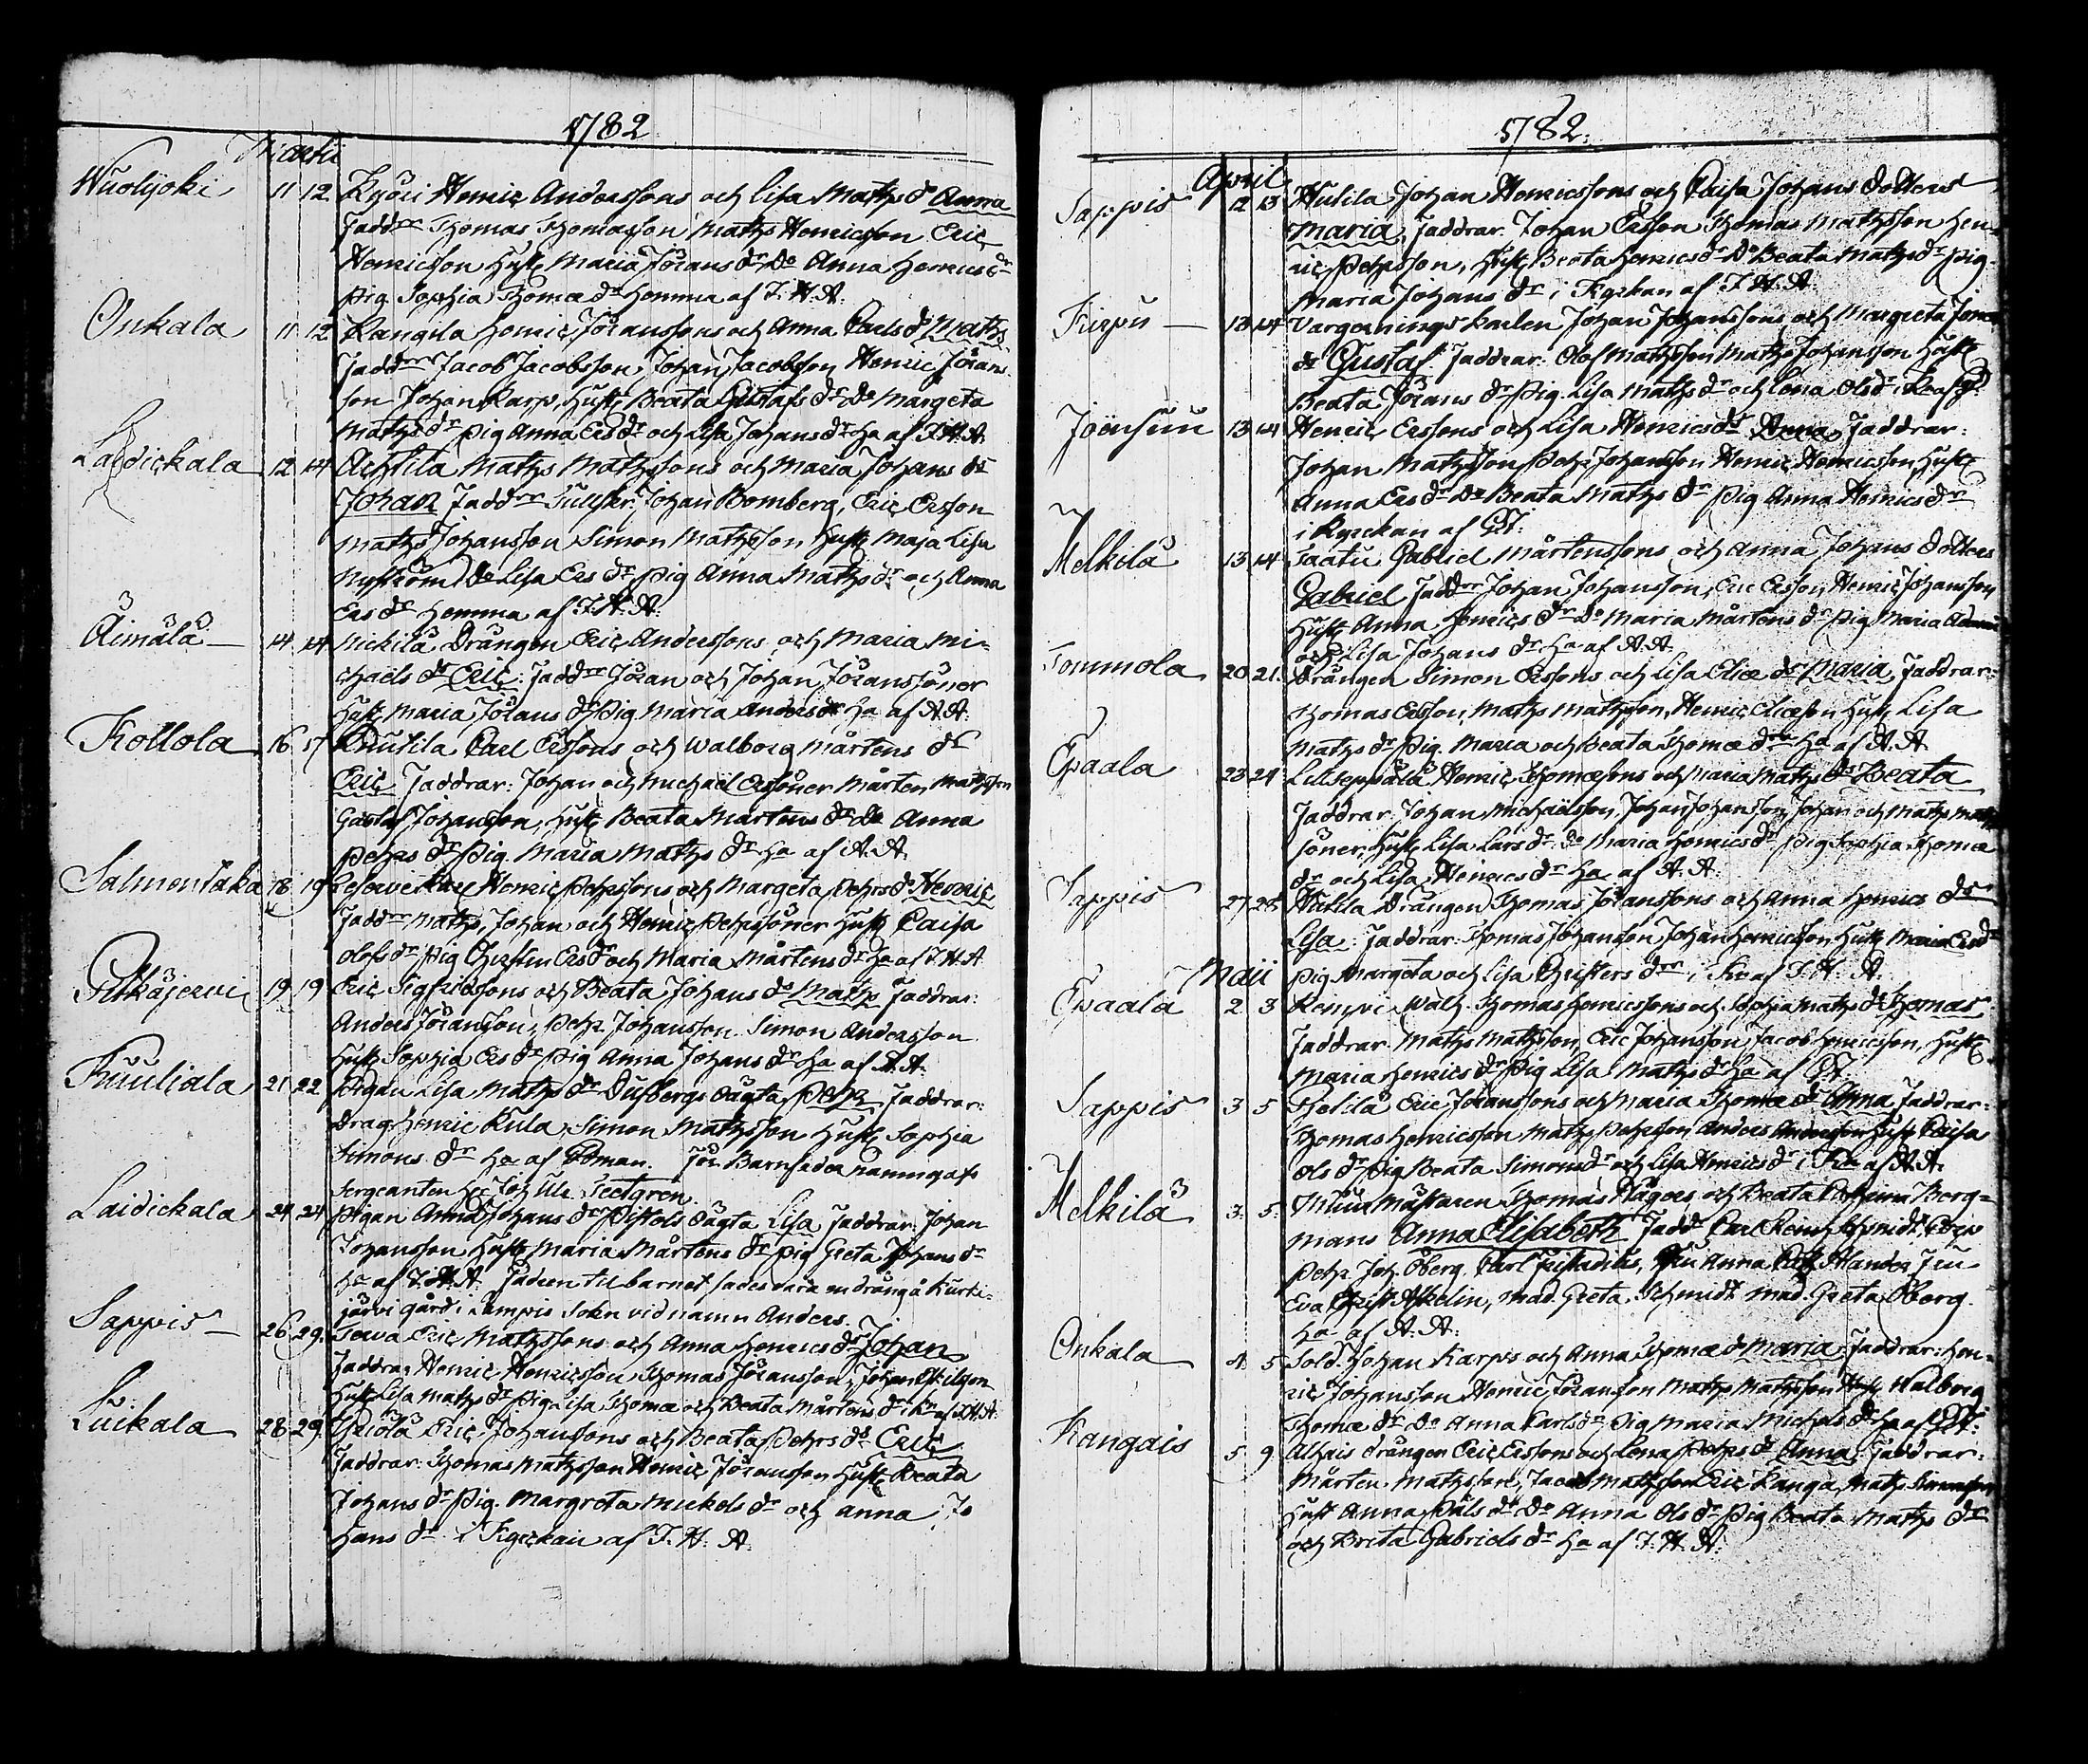 1782
Martii
Wuolijoki 11 12 Kyöri Henric Anderssons och Lisa Mathsdr Anna
Faddrar Thomas Thomasson Maths Henricsson Eric
Henricsson Hust. Maria Jörans dr Do Anna Henrics dr
Pig. Sophia Thomæ dr Hemma af J. H. A.
Onkala 11 12 Kangila Henric Jöranssons och Anna Carls dr Maths
Faddrar Jacob Jacobsson, Johan Jacobsson Henric Jörans
son Johan Karp, Hust. Beata Gustafs dr Do Margeta
Maths dr Pig Anna Ers dr och Lisa Johans dr Ha af J. H. A.
Laidickala 12 14 Achtila Maths Mathssons och Maria Johans dr
Johan Faddrar Johan Bomberg, Eric Ersson
Maths Johansson Simon Mathsson Hust. Maja Lisa
Nyström Do Lisa Ers dr Pig Anna Maths dr och Anna
Ers dr Hemma af J. H. A.
Äimälä 14 14 Mickilä Drängen Eric Anderssons och Maria Mi-
chaels dr Eric. Faddrar Jöran och Johan Jöranssöner
Hust. Maria Jörans dr Pig. Maria Anders dr Ha af A. A.
Kollola 16 17 Knutila Carl Erssons och Walborg Mårtens dr
Eric Faddrar: Johan och Michael Erssöner Mårten Mathsson
Gustaf Johansson, Hust. Beata Mårtens dr Do Anna
Pehrs dr Pig. Maria Maths dr Ha af A. A.
Salmentaka 18 19 Henric Pehrssons och Margeta Pehrs dr Henric
Faddrar Maths, Johan och Henric Pehrssöner Hust. Caisa
Olofs dr Pig Christin Ers dr och Maria Mårtens dr Ha af J. H. A
Pitkäjerwi 19 19 Eric Sigfridssons och Beata Johans dr Maths Faddrar:
Anders Jöransson, Pehr Johansson Simon Andersson
Hust. Sophia Ers dr Pig Anna Johans dr Ha af A. A.
Kuuliala 21 22 Pigan Lisa Maths dr Dufbergs oägta Pehr Faddrar:
Dräg. Henric Kula, Simon Mathsson Hust. Sophia
Simons dr Ha af För Barnfader namngafs
Sergeanten Joh. Ulr. Seetgren.
Laidickala 24 24 Pigan Anna Johans dr Pistols oägta Lisa Faddrar Johan
Johansson Hust. Maria Mårtens dr Pig Greta Johans dr
Ha af J. H. A. Fadren til barnet sades vara en dräng å Kurte-
järvi gård i Lampis Sokn vid namn Anders.
Sappis 26 29. Terva Eric Mathssons och Anna Henrics dr Johan
Faddrar Henric Henricsson Thomas Jöransson, Johan
Hust Lisa Maths dr Pig Lisa Thomæ och Beata Mårtens dr i Kn af J. H. A.
Luickala 28 29 Yriölä Eric Johanssons och Beata Pehrs dr Eric
Faddrar. Thomas Mathsson Henric Jöransson Hust. Beata
Johans dr Pig. Margreta Mickels dr och Anna Jo
hans dr i Kyrckan af J. H. A.
1782.
April
Sappis 12 13 Hutila Johan Henricssons och Caisa Johans dotters
Maria, Faddrar. Johan Ersson Thomas Mathsson Hen-
ric Pehrsson, Hust. Beata Henrics dr Do Beata Maths dr Pig.
Maria Johans dr i Kyrkan af J. H. A.
Kirpu 13 14 Vargerings karlen Johan Johanssons och Margreta
dr Gustaf. Faddrar: Olof Mathsson Maths Johansson Hust.
Beata Jörans dr Pig. Lisa Maths dr och Lena Ols dr i
Joensuu 13 14 Henric Erssons och Lisa Henrics dr Anna Faddrar:
Johan Mathsson Pehr Johansson Henric Henricsson Hust.
Anna Ers dr Do Beata Maths dr Pig Anna Henrics dr
i Kyrckan af
Melkilä 13 14 Taatu Gabriel Mårtenssons och Anna Johans dotters
Gabriel Faddrar Johan Johansson, Eric Ersson, Henric Johansson
Hust. Anna Henrics dr Do Maria Mårtens dr Pig Maria
och Lisa Johans dr Ha af A. A.
Tommola 20 21. Drängen Simon Erssons och Lisa Eliæ dr Maria, Faddrar:
Thomas Ersson, Maths Mathsson, Henric Eliæson Hust. Lisa
Maths dr Pig. Maria och Beata Thomæ drr Ha af A. A.
Epaala 23 24 Lillseppälä Henric Thomæsons och Maria Maths dr Beata
Faddrar. Johan Michaelsson, Johan Johansson, Johan och Maths
söner, Hust. Lisa Lars dr Do Maria Henrics dr Pig Sophia Thomæ
dr och Lisa Henrics dr Ha af A. A.
Sappis 27 28 Hutila Drängen Thomas Jöranssons och Anna Henrics dr
Lisa: Faddrar. Thomas Johansson Johan Henricsson Hust. Maria Ers dr
Pig Margeta och Lisa Christers drr i Kn af J. H. A.
Maii
Epaala 2. 3 Kempe Walb. Thomas Henricssons och Sophia Maths dr Thomas
Faddrar. Maths Mathsson, Eric Johansson Jacob Henricsson, Hust.
Maria Henrics dr Pig Lisa Maths dr Ha af
Sappis 3 5 Eric Jöranssons och Maria Thomæ dr Anna, Faddrar:
Thomas Henricsson Maths Pehrsson Anders Andersson Hust. Caisa
Ols dr Pig Beata Simons dr och Lisa Henrics dr i Kn af A. A.
Melkilä 3. 5. Thomas Hägers och Beata Cathrina Berg-
mans Anna Elisabeth Fadd. Carl Schmidt,
Pehr Joh. Öberg. Carl Fru Anna Alander Fru
Eva Christ. Askelin, Mad. Greta Schmidt Mad. Greta Öberg.
Ha af A. A.
Onkala 4 5 Sold. Johan Karps och Anna Thomæ dr Maria. Faddrar: Hen-
ric Johansson Henric Jöransson Maths Mathsson Hust. Walborg
Thomæ dr Do Anna Carls dr Pig Maria Michels dr Ha af
Kangais 5 9 Alhais drängen Eric Erssons och Lena Pehrs dr Anna, Faddrar:
Mårten Mathsson, Jacob Mathsson Eric Kanga, Maths Simonsson
Hust Anna Påls dr Do Anna Ols dr Pig Beata Maths dr
och Brita Gabriels dr Ha af J. H. A.